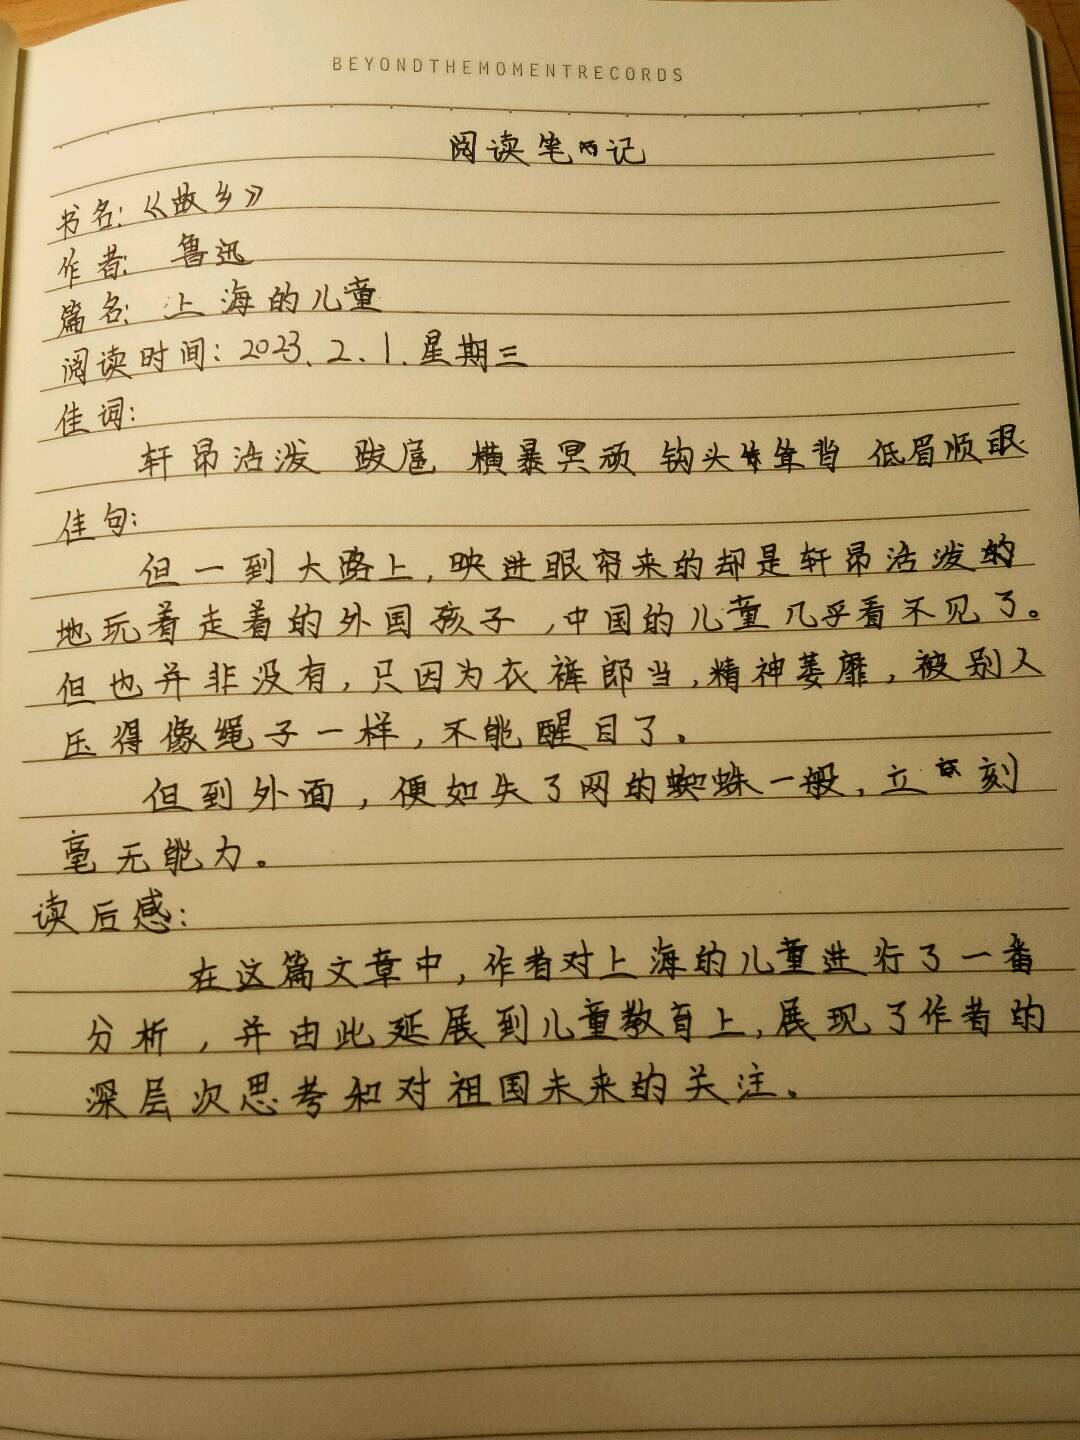 BEYONDTHEMOMENTRECORDS
阅读笔记
书名:《故乡》
作者: 鲁迅
篇名: 上海的儿童
阅读时间: 2023.2.1.星期三
佳词:
轩昂活泼 跋扈 横暴冥顽 钩头耸背 低眉顺眼
佳句:
但一到大路上,映进眼帘来的却是轩昂活泼的
地玩着走着的外国孩子,中国的儿童几乎看不见了。
但也并非没有,只因为衣裤郎当,精神萎靡,被别人
压得像绳子一样,不能醒目了。
但到外面,便如失了网的蜘蛛一般,立刻
毫无能力。
读后感:
在这篇文章中,作者对上海的儿童进行了一番
分析,并由此延展到儿童教育上,展现了作者的
深层次思考和对祖国未来的关注。